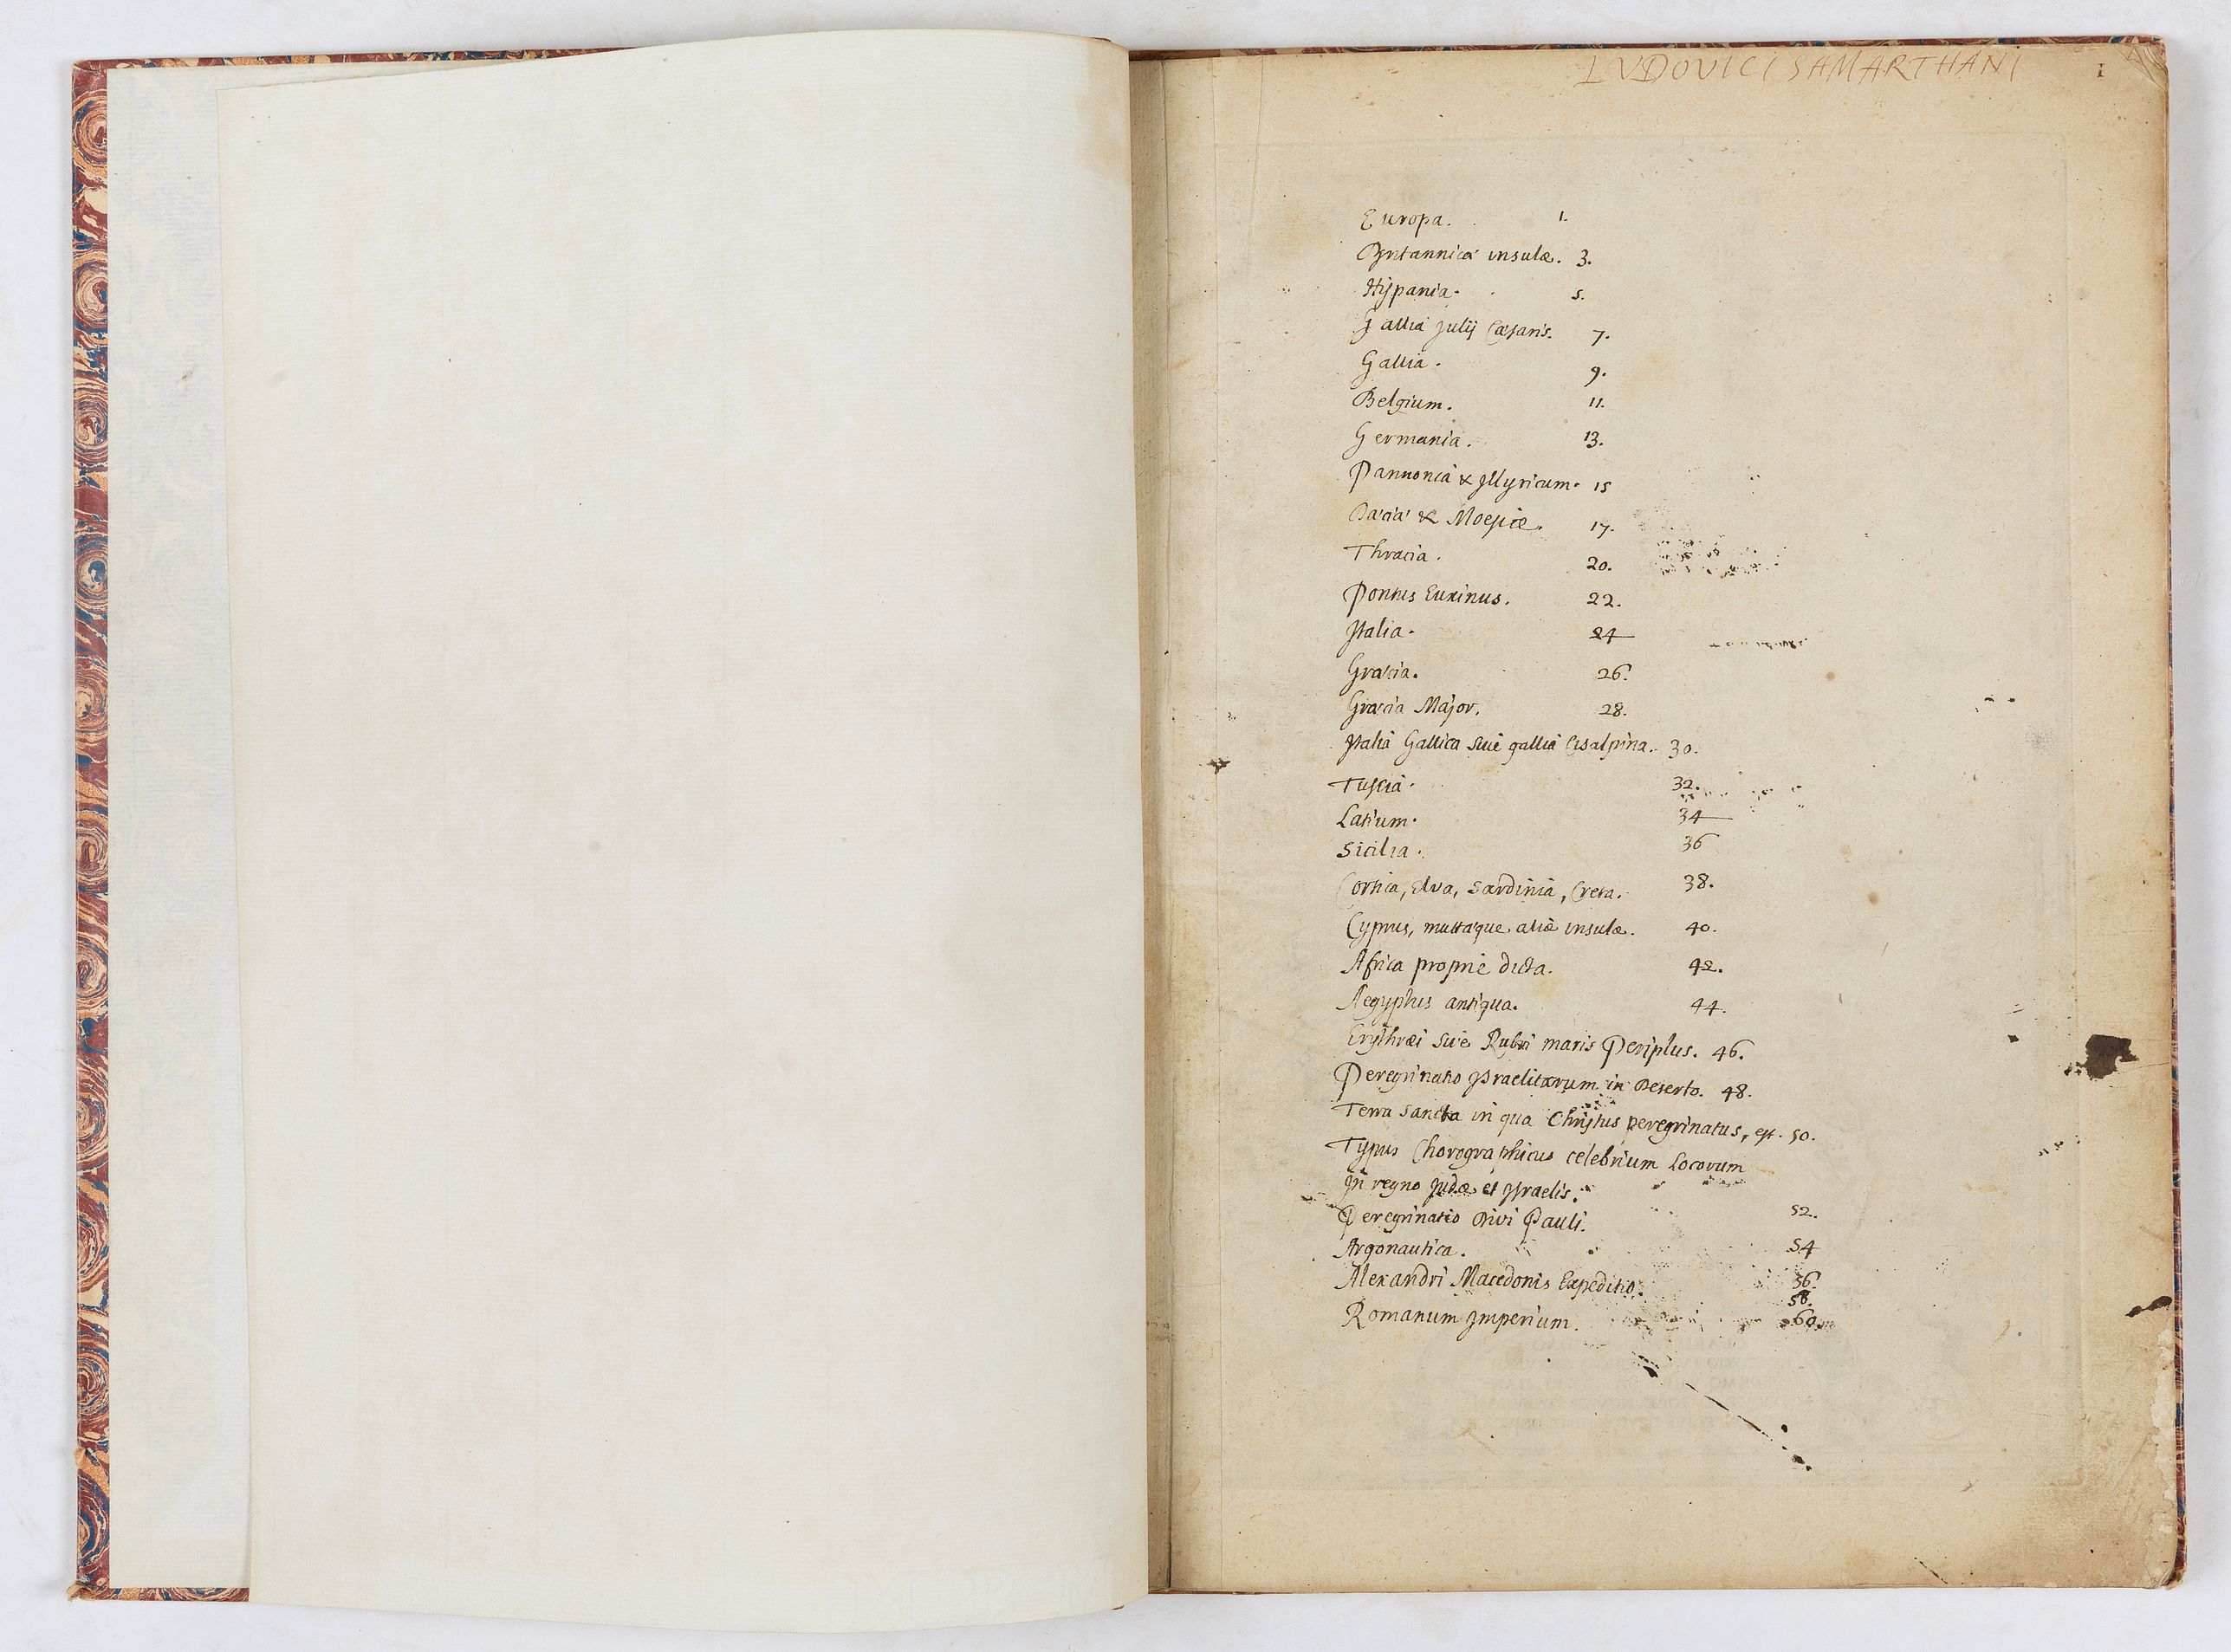 LVDOVICI SAMARTHANI
1
Europa. 1.
Britannicæ insulæ. 3.
Hispania. 5.
Gallia Julij Cæsaris. 7.
Gallia. 9.
Belgium. 11.
Germania. 13.
Pannonia & Illyricum. 15
Dacia & Moesiæ. 17.
Thracia. 20.
Pontus Euxinus. 22.
Italia. 24
Græcia. 26.
Græcia Major. 28.
Italia Gallica sive gallia Cisalpina. 30.
Tuscia. 32.
Latium. 34
Sicilia. 36
Corsica, Elva, Sardinia, Creta. 38.
Cyprus, multæque aliæ insulæ. 40.
Africa propriè dicta. 42.
Aegyptus antiqua. 44.
Erythræi sive Rubri maris Periplus. 46.
Peregrinatio Israelitarum in Deserto. 48.
Terra Sancta in qua Christus peregrinatus, est. 50.
Typus Chorographicus celebrium Locorum
In regno Judæ et Israelis. 52.
Peregrinatio Divi Pauli. 54
Argonautica. 56.
Alexandri Macedonis Expeditio. 58.
Romanum Imperium. 60.